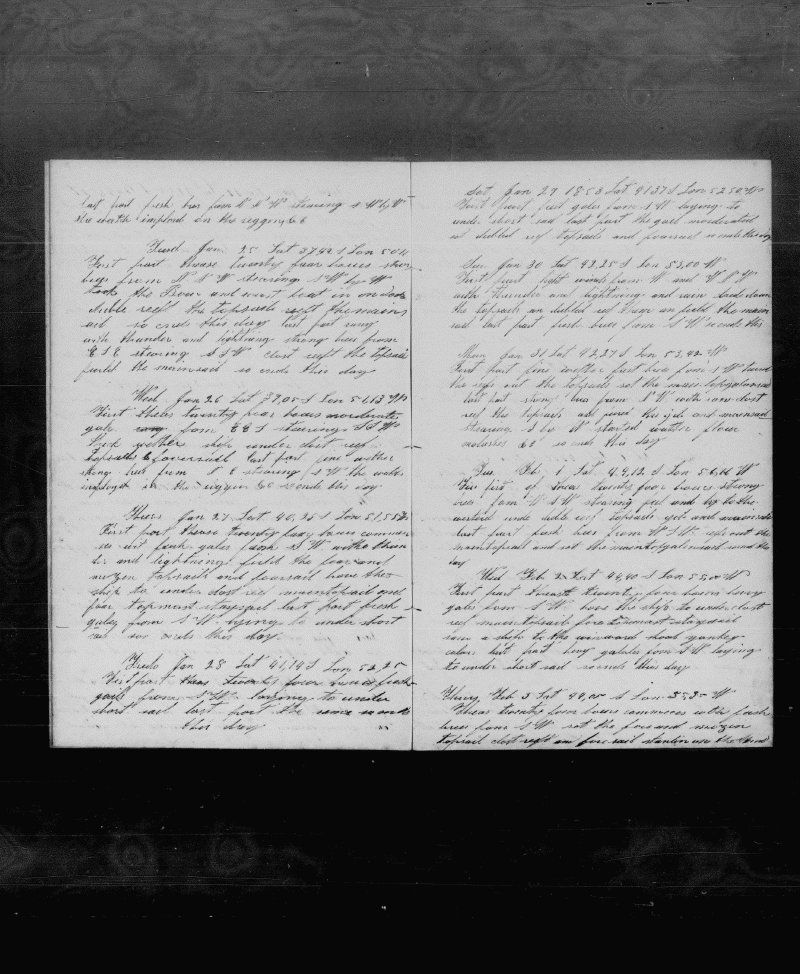 last part fresh bres from N N W stearing S W by W
the wach imployd in the rigging &c
Tuesd Jan 25 Lat 37,42 S Lon 50
First part theese twenty four hours stron
bres from N N W stearing S W by W
took the
duble reeft the topsails reeft the mainsail
so ends this day last part rany
with thunder and lightning strong bres from
E S E stearing S S W clost reeft the topsails
furld the mainsail so ends this day
Wed Jan 26 Lat 39,05 S Lon 51,13 W
First theas twenty four hours moderate
gale from stearing S S W
ship under clost reef
topsails & foursail last part fine wether
strong bres from N E stearing S W the watch
imployd in the riggin &c so ends this day
Thurs Jan 27 Lat 40,26 S Lon 51,55
First part theese twenty four hours commen
ses wit fresh gales from S W withe thun
der and lightning furld the four and
mizen topsails and foursail have the
ship to under clost reef maintopsail and
four topmast staysail last part fresh
gales from S W lying to under short
sail so ends this day
Frids Jan 28 Lat 41,19 S Lon 52,25
First part theas twenty four hours fresh
gails from S W laying to under
short sail last part the same so ends
this day
Sat Jan 29 1853 Lat 41 37 S Lon 52 50 W
First part fresh gales from S W laying to
under short sail last part the gail moderated
set dubled reef topsails and foursail so ends this day
Sun Jan 30 Lat 42,25 S Lon 53,00 W
First part light winds from W and W N W
with thunder and lightning and rain
the topsails an dubled reef them an furld the main
sail last part fresh bres from S W so ends this
Mon Jan 31 Lat 42,27 S Lon 53,42 W
First part fine wether fresh bres from S W turnd
the refs out the topsails set the main topgalansail
last part strong bres from N W with rain clost
reef the topsails and furld the jib and mainsail
stearing S by W started watter flour
molasses &c so ends this day
Tus Feb 1 Lat 44,12 S Lon 54,46 W
The first of theas twenty four hours strong
bres from W S W stearing full and by to the
westard under duble reef topsails jib and mainsail
last part fresh bres from W S W refs out the
maintopsail and set the maintopgalansail so ends this
day
Wed Feb 2 Lat 44,40 S Lon 55,00 W
First part theas twenty four hours hevy
gales from S W have the ship to under clost
reef maintopsail foretopmast staysail
saw a ship to the winward shoad yankey
colers last part hevy gales from S W laying
to under short sail so ends this day
Thurs, Feb 3 Lat 44,05 S Lon 55,35 W
Theas twenty four hours commences with fresh
bres from S W set the fore and mizen
topsail clost reeft an fore sail standin on the wind